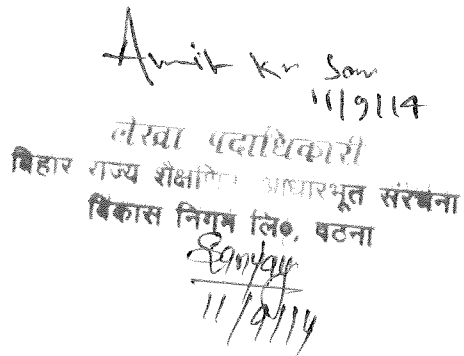 Amit Kr Som
11/9/14
लेखा पदाधिकारी
बिहार राज्य शैक्षणिक आधारभूत संरचना
विकास निगम लि०, पटना
Sanjay
11/9/14